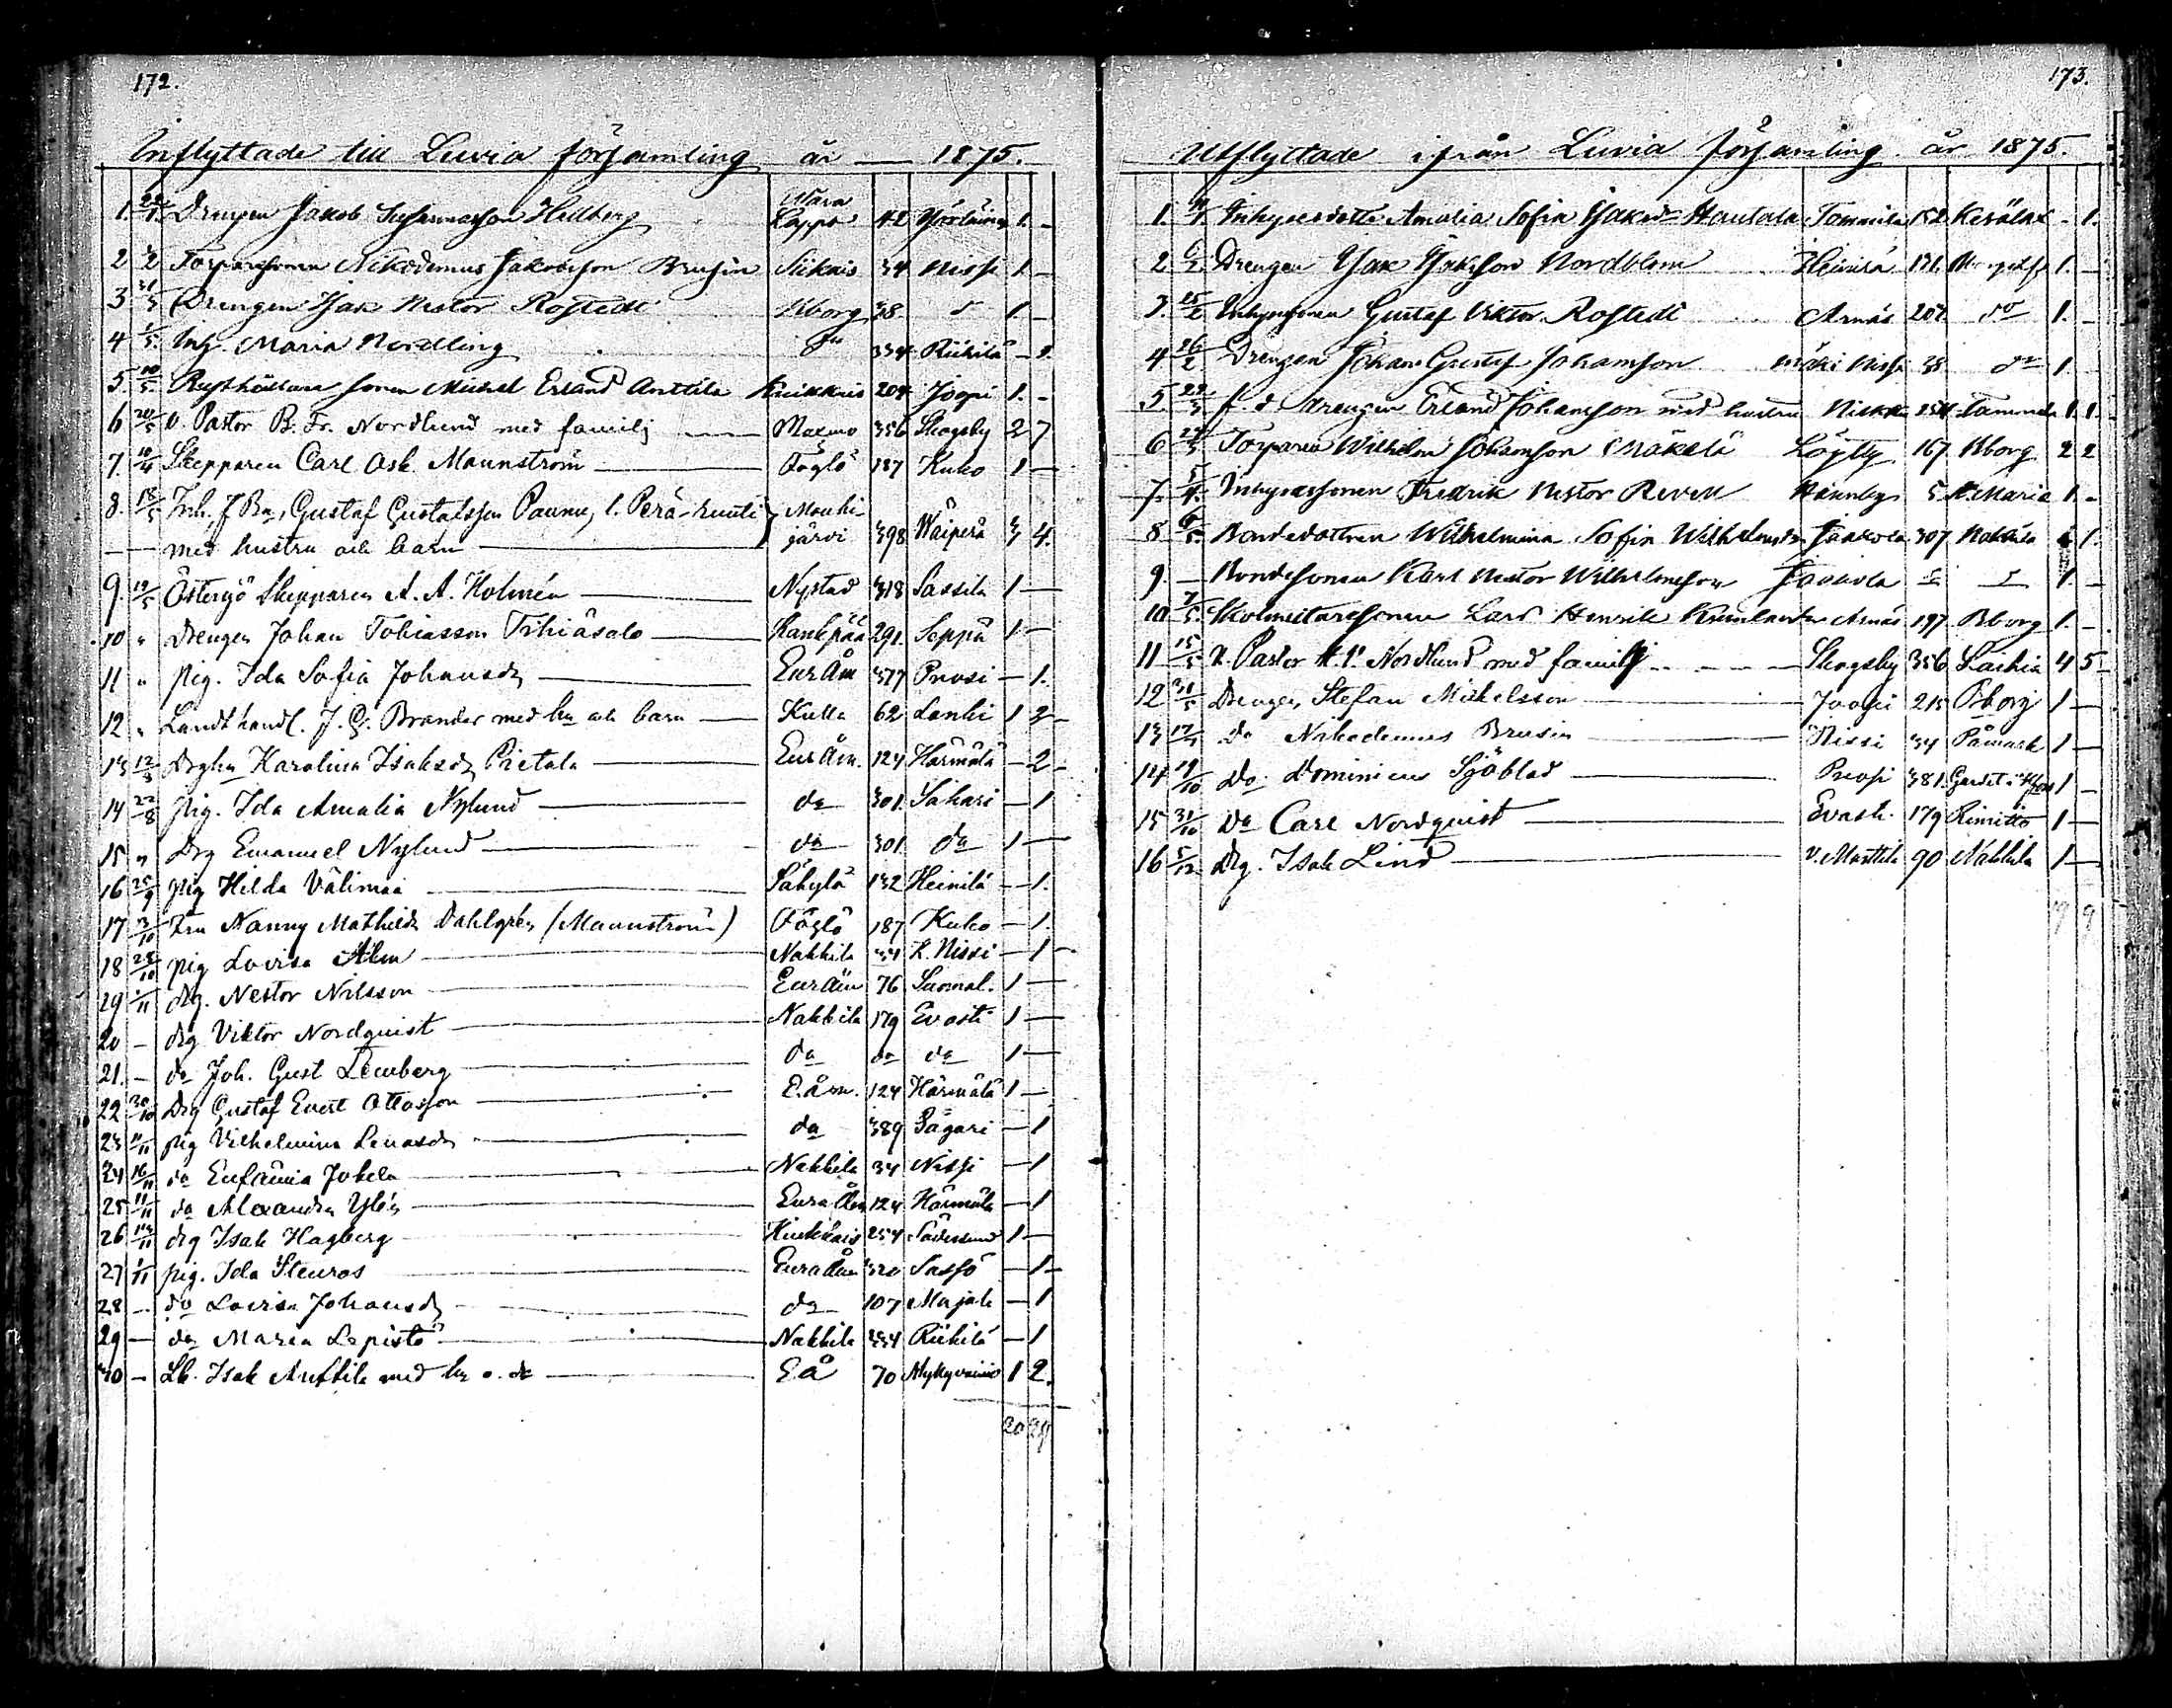 172.
Inflyttade till Luvia församling år — 1875.
1. Drengen Jakob Hellberg Lappo 42 1. -
2 1/2 Torparesonen Nikodemus Jakobsson Brusin Siikais 34 Nissi 1 -
3 Drengen Isak Nestor Rostedt Bborg 38 1. -
4 1/5. Inh. Maria Nordling 334 Riihilä - 1.
5. 10/5. Rusthållare sonen Mickel Erland Anttila Kiukkais 204 Joopi 1. -
6 20/5 v. Pastor B. Fr. Nordlund med familj — Maxmo 356 Skogsby 2 7
7. Skepparen Carl Osk Maunström — Föglö 187 Kuko 1 —
8. 18/5 Inh. f Ba, Gustaf Gustafsson Paunu, l. Perä-runti Mouhi-
— — med hustru och barn — järvi 398 Waiperä 3 4.
9. 19/5 Östersjö Skepparen A. A. Holmén — Nystad 318 Sassila 1 —
10 " Drengen Johan Tobiasson Tihiäsalo — Kankpää 291. Seppä 1 —
11 " pig. Ida Sofia Johansdr — Eur Åm 377 Prusi — 1.
12 " Landthandl. J. G. Brander med hu och barn — Kulla 62 Lanki 1 2 -
13 12/3 Drghu Karolina Isaksdr Pietala — Eur Åm. 124 Härmälä — 2 -
14 22/8 pig. Ida Amalia Nylund — do 301. Sahari — 1
15 " Drg Emanuel Nylund — do 301 do 1 —
16 25/9 pig Hilda Välimaa — Säkylä 132 Heinilä — 1.
17 3/10 Fru Nanny Mathilda Dahlgrén (Maunström) Föglö 187 Kuko — 1.
18 28/10 pig Lovisa Alm — Nakkila 34 K. Nissi — 1 -
29 /11 drg. Nestor Nilsson — Eur Åm 76 Suomal. 1 —
20 — drg Viktor Nordquist — Nakkila 179 Evasti 1 —
21. — do Joh. Gust Lemberg — do do do 1 —
22 30/10 Drg Gustaf Evert Ottosson — E. åm. 124 Härmälä 1 —
23 11/11 pig Vilhelmina Lenasdr — do 389 Pågari — 1
24 16/11 do Eufämia Jokela — Nakkila 34 Nissi — 1
25 11/11 do Alexandra Ylén — Eura Åm 124 Härmälä — 1
26 /11 drg Isak Hagberg — Kiukkais 254 Södersund 1 —
27 /11 pig. Ida Stenros — Eura Åm 320 Sassi — 1 -
28 — do Lovisa Johansdr — do 107 Marjak — 1
29 — do Maria Lepistö — Nakkila 334 Riihilä — 1
30 — Lb. Isak Anttila med hu o. dr — E Å 70 1 2.
30 29
173.
Utflyttade ifrån Luvia församling år 1875.
1. Inhysesdotter Amalia Sofia Isaksdr Hautala Tommila 152 - 1.
2 Drengen Isak Isaksson Nordblom Heinilä 131. 1. -
3. 25/2 Inhysesonen Gustaf Viktor Rostedt Arnäs 207. do 1. -
4 26/2 Drengen Johan Gustaf Johansson Mäki Nissi 38 do 1
5. f. d. drengen Erland Johansson med hustru 254 1. 1.
6 Torparen Wilhelm Johansson Mäkelä Löytty 167 Bborg 2 2
7. 5/4. Inhysessonen Fredrik Nestor Revell 5 St. Marie 1. -
8 6/5. Bondedottren Wilhelmina Sofia Wilhelmsdr Jaakola 307 Nakkila 1.
9. — Bondesonen Karl Nestor Wilhelmsson Jaakola 1. -
10 7/5. Arnäs 197 Bborg 1. -
11 15/5 v. Pastor Nordlund med familj — Skogsby 356 Laihia 4 5
12 31/5 Drengen Stefan Mickelsson — Joopi 215 Bborg 1 —
13 do Nikodemus Brusin — Nissi 34 Påmark 1 —
14 19/10 do. Dominicus Sjöblad — Preosi 381. 1 -
15 31/10 do Carl Nordquist — Evasti. 179 Rimitto 1 —
16 5/12 Drg. Isak Lind — V. Marttila 90 Nakkila 1 —
9